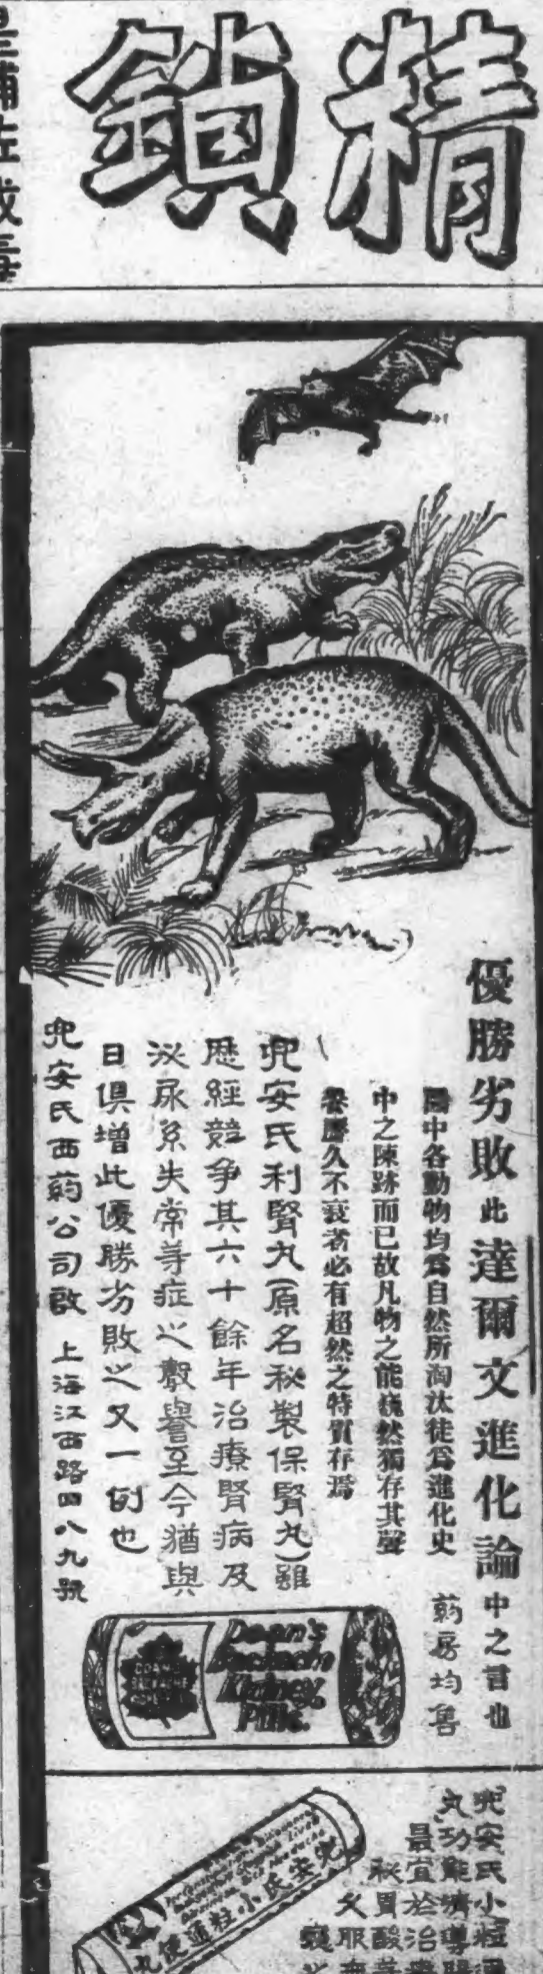 精鎖
優勝劣敗此達爾文進化論中之言也
圖中各動物均為自然所淘汰徒為進化史
中之陳跡而已故凡物之能巍然獨存其聲
譽歷久不衰者必有超然之特質存焉
兜安氏利腎丸(原名秘製保腎丸)雖
歷經競爭其六十餘年治療腎病及
泌尿系失常等症之聲譽至今猶與
日俱增此優勝劣敗之又一例也
兜安氏西葯公司啟 上海江西路四八九號
葯房均售
Doan's
Backache
Kidney
Pills.
兜安氏小粒通便丸
兜安氏小粒通
丸功能
最宜於治